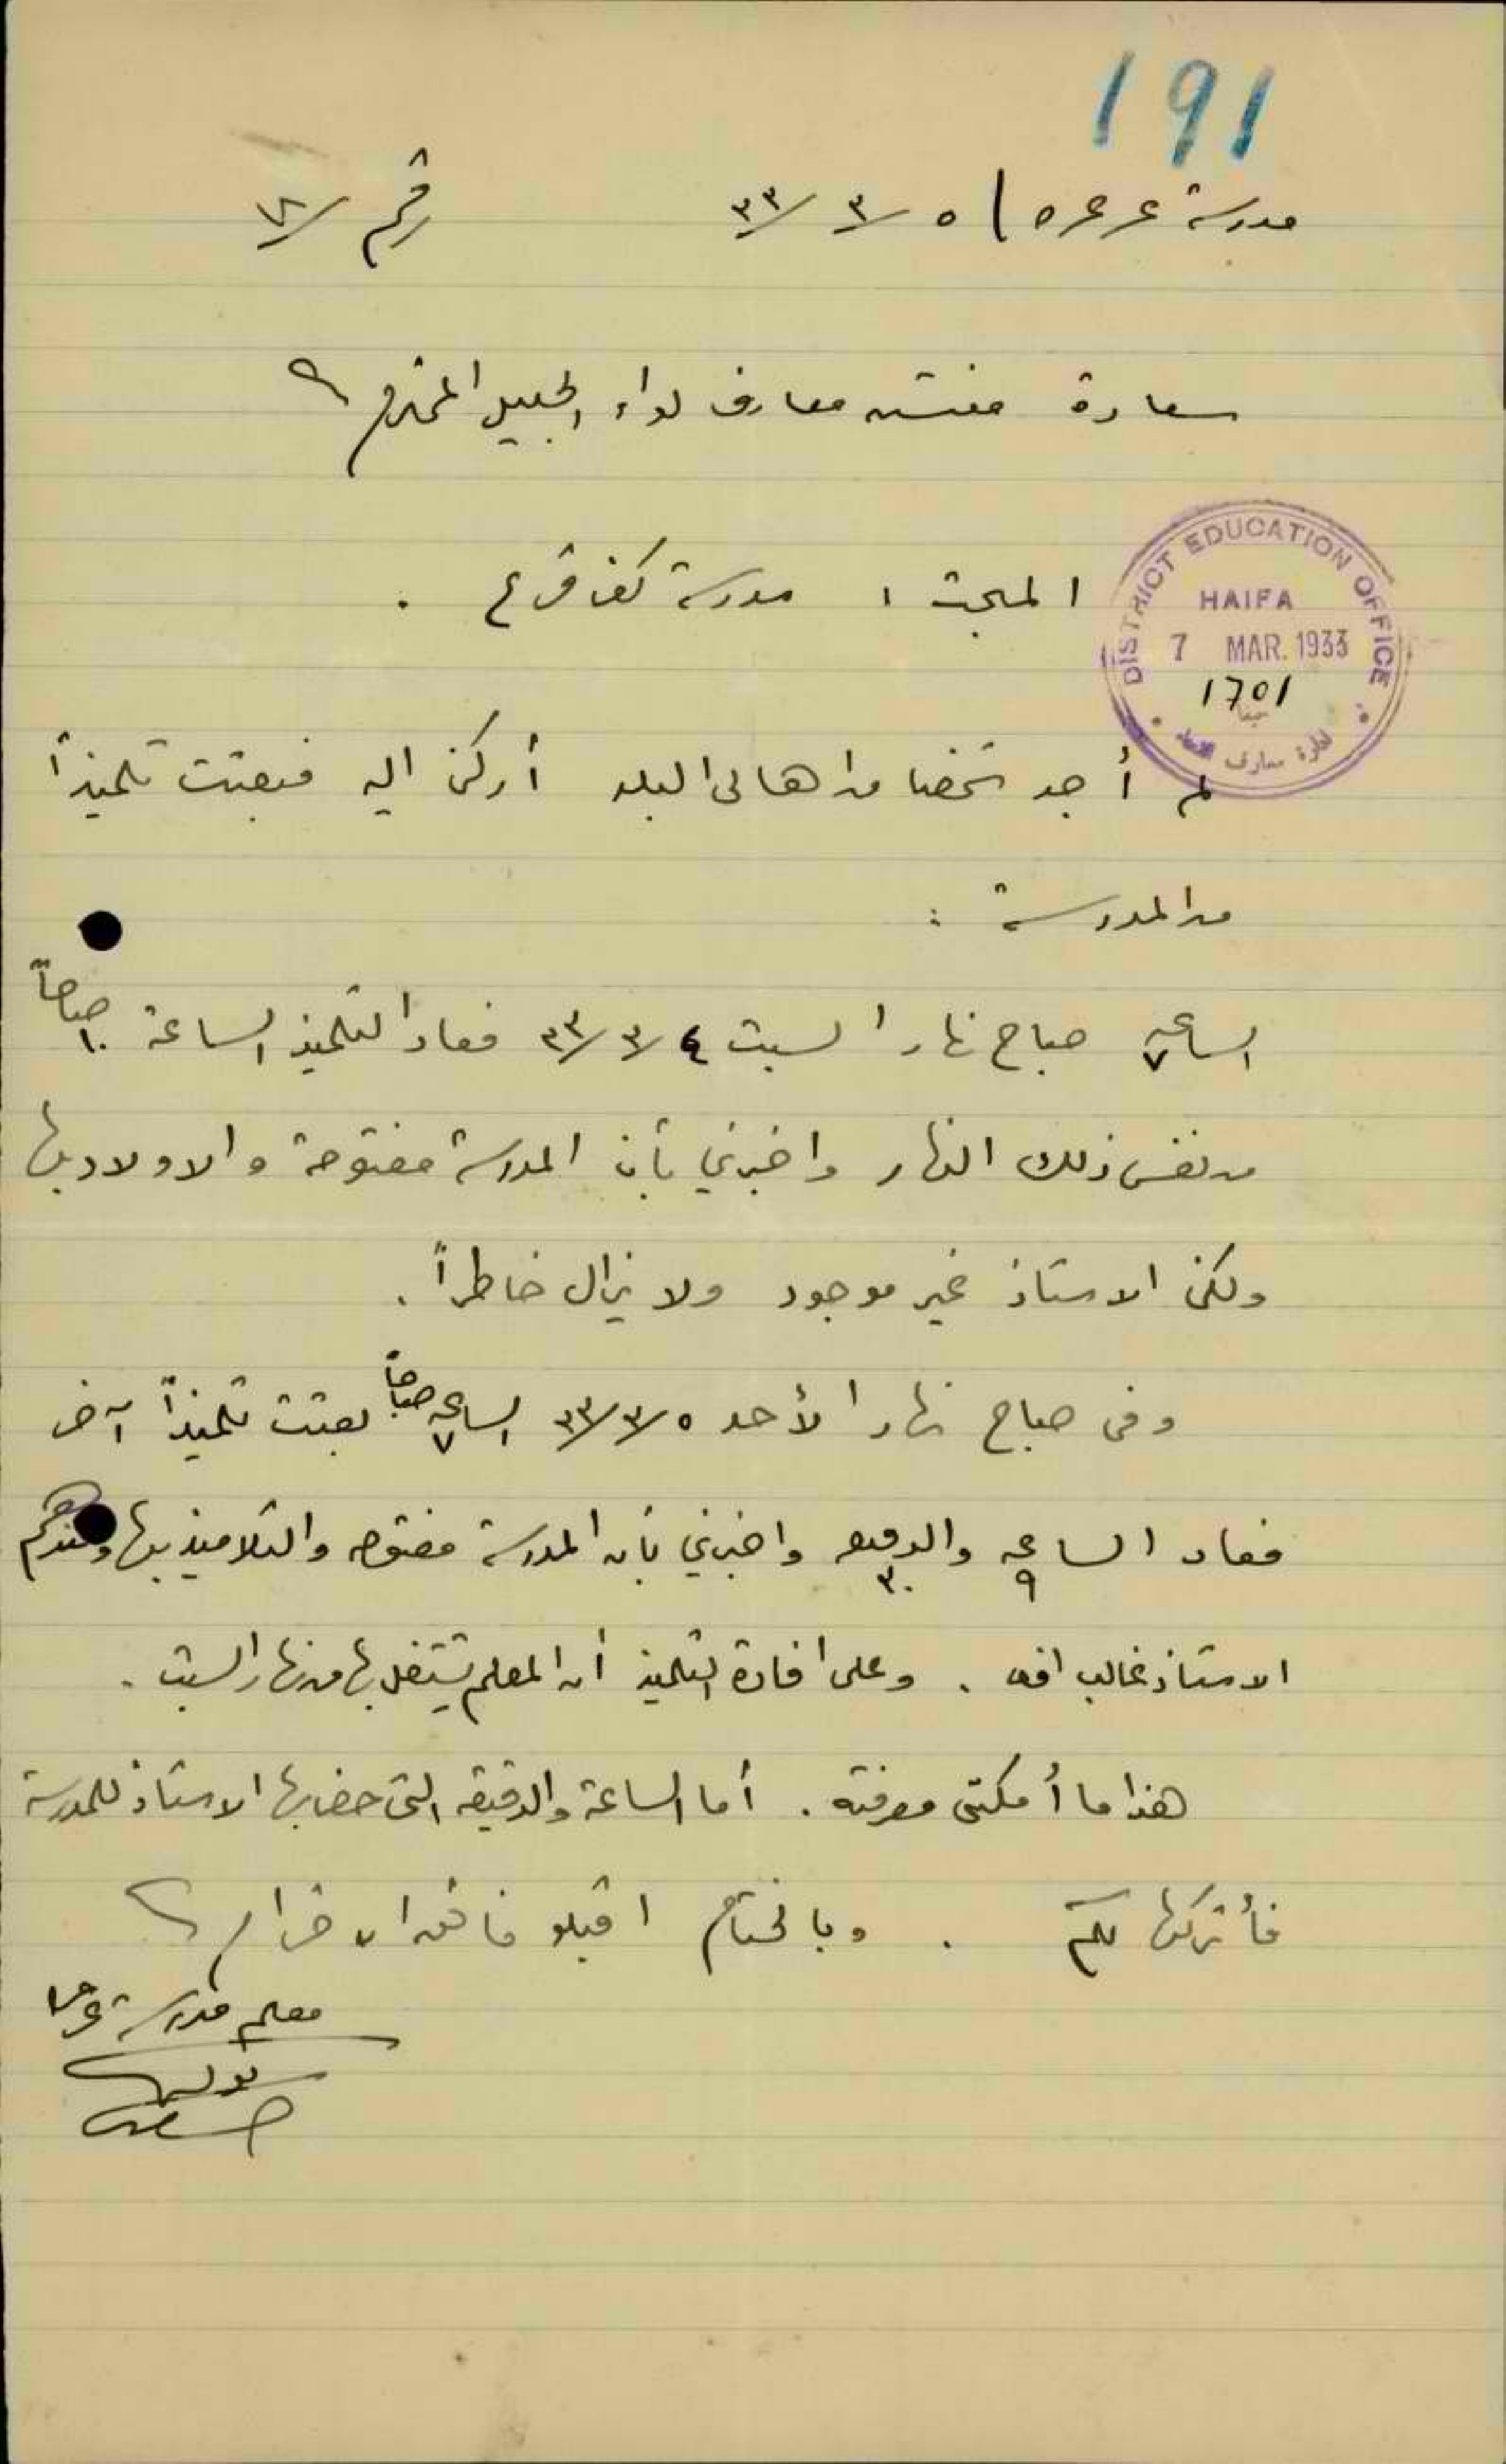 191
مدرسة عرعره / ٥ / ٣ / ٣٣ رقم /
سعادة مفتش معارف لواء الجليل المحترم
DISTRICT EDUCATION OFFICE
HAIFA
7 MAR. 1933
1701
ادارة معارف
المبحث : مدرسة كفر قرع .
لم أجد شخصا من اهالي البلد أركن اليه فبعثت تلميذاً
من المدرسة :
الساعه ٧ صباح نهار السبت ٤ / ٣ / ٣٣ فعاد التلميذ الساعة ١٠ صباحاً
من نفس ذلك النهار واخبرني بأن المدرسة مفتوحة والاولاد بها
ولكن الاستاذ غير موجود ولا يزال خاطراً .
وفي صباح نهار الأحد ٥ / ٣ / ٣٣ الساعه ٧ صباحاً بعثت تلميذاً آخر
فعاد الساعه ٩ والدقيقه ٣٠ واخبرني بأن المدرسة مفتوحه والتلاميذ بها وعندهم
الاستاذ غالب افندي . وعلى افادة التلميذ أن المعلم يشتغل بها من نهار السبت .
هذا ما أمكنني معرفته . أما الساعة والدقيقه التي حضر بها الاستاذ للمدرسة
فأتركها لكم . وبالختام اقبلو فائق الاحترام
معلم مدرسة عرعره